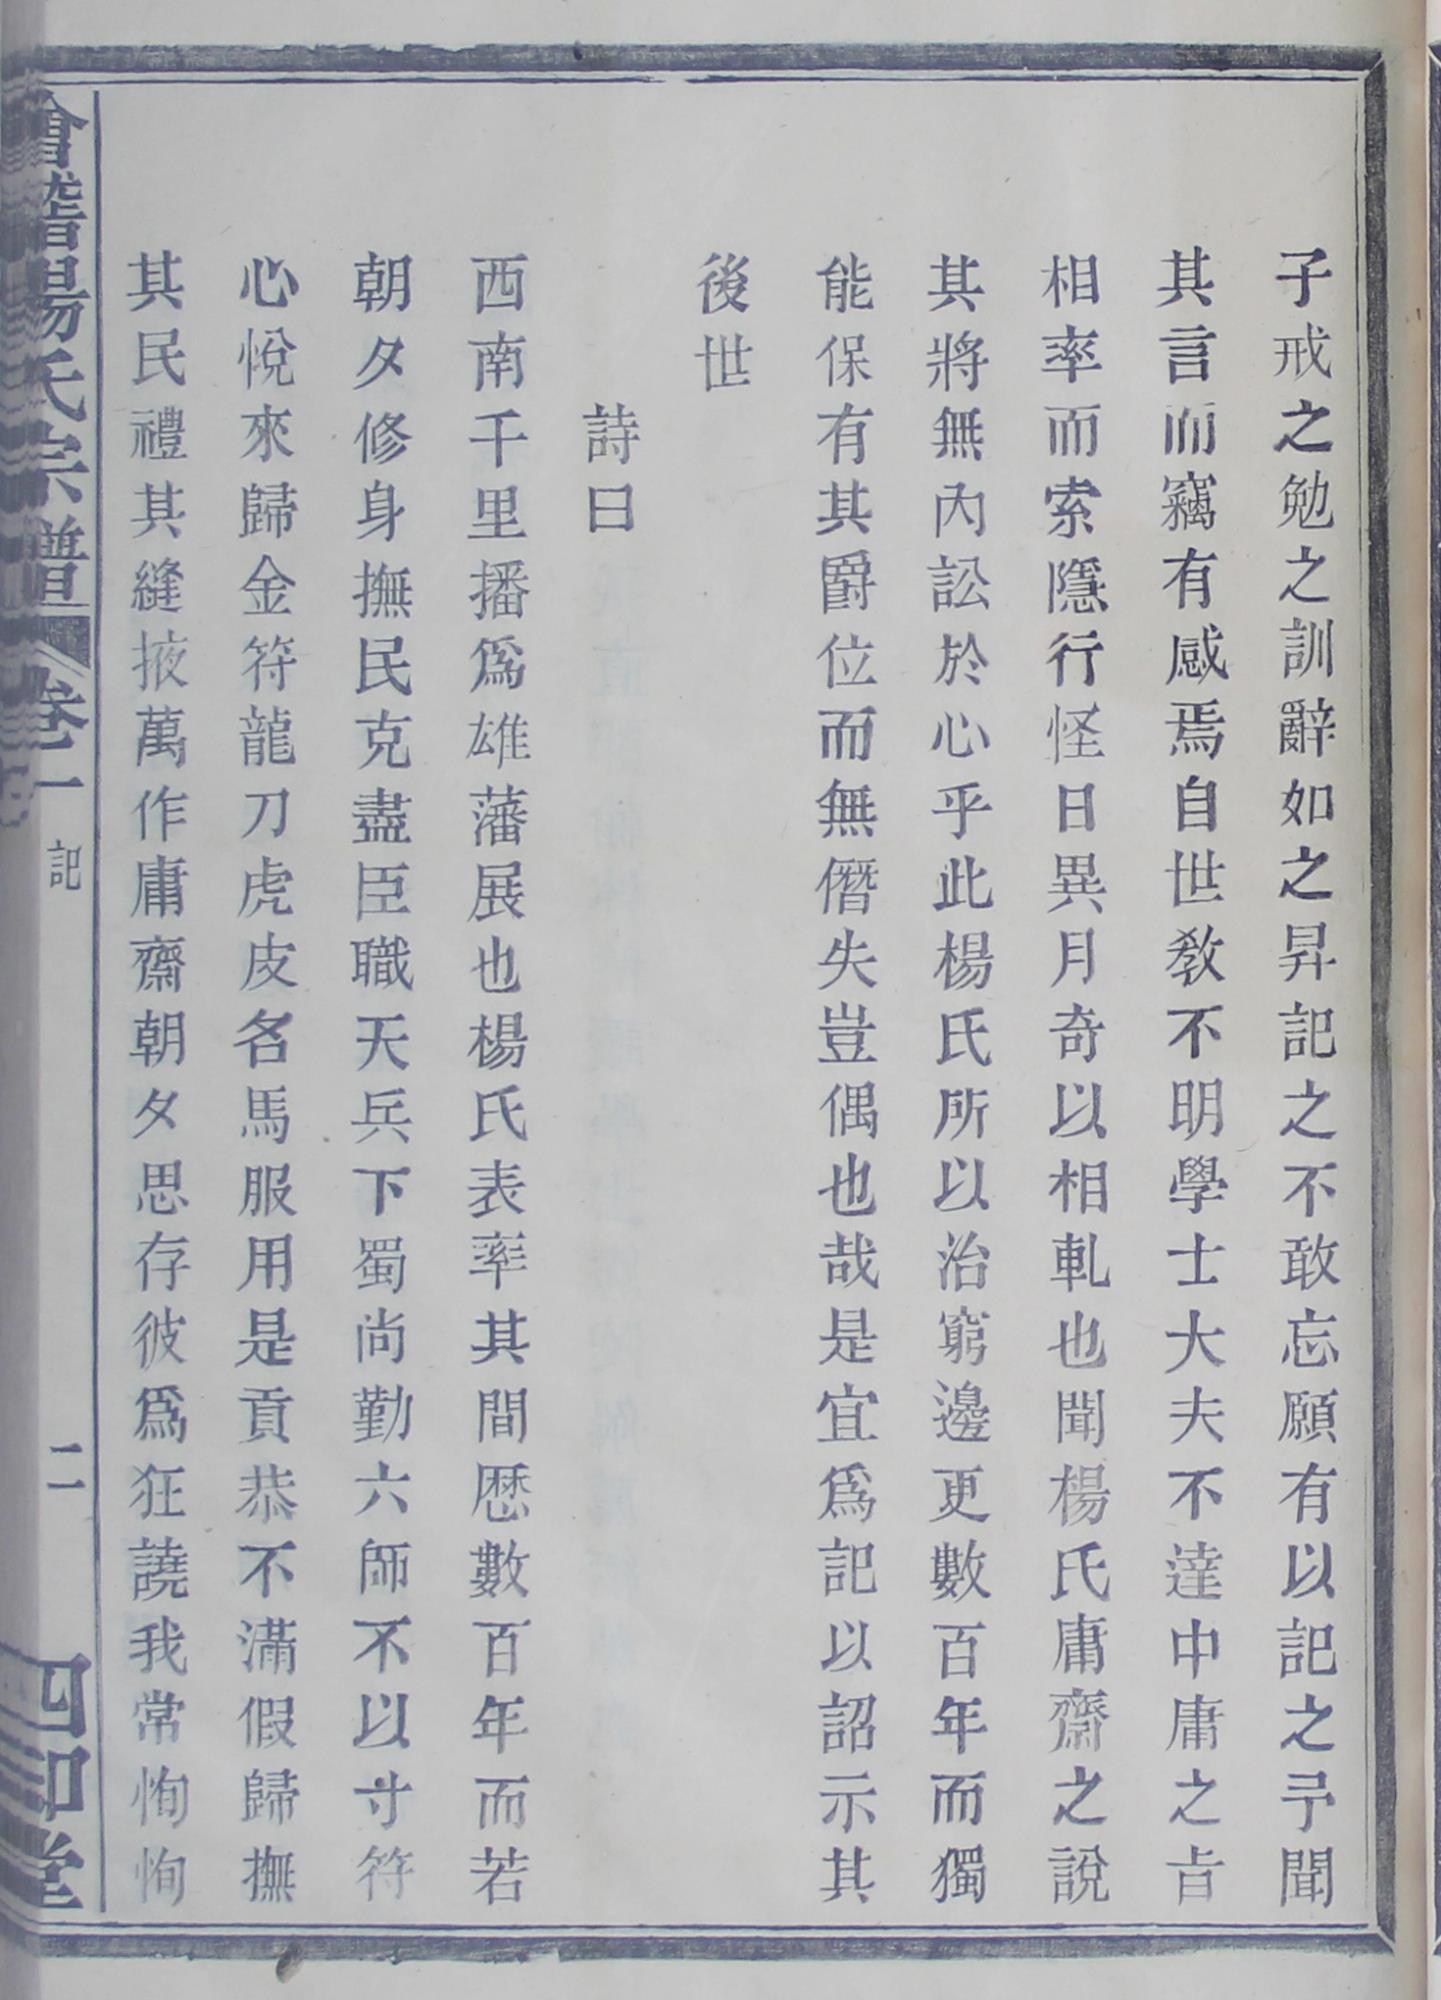 子戒之勉之訓辭如之昇記之不敢忘願有以記之予聞
其言而竊有感焉自世教不明學士大夫不達中庸之旨
相率而索隱行怪日異月奇以相軋也聞楊氏庸齋之說
其將無內訟於心乎此楊氏所以治窮邊更數百年而獨
能保有其爵位而無僭失豈偶也哉是宜爲記以詔示其
後世
詩曰
西南千里播爲雄藩展也楊氏表率其間歷數百年而若
朝夕修身撫民克盡臣職天兵下蜀尚勤六師不以寸符
心悅來歸金符龍刀虎皮名馬服用是貢恭不滿假歸撫
其民禮其縫掖萬作庸齋朝夕思存彼爲狂譊我常恂恂
會稽楊氏宗譜 卷一 記 二 四知堂